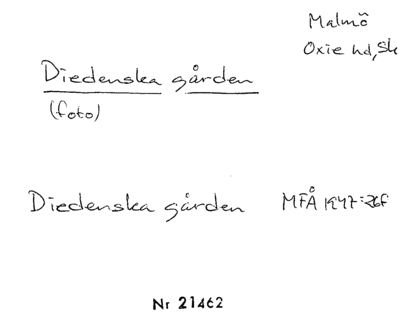 Malmö
Oxie hd, Sk
Diedenska gården
(foto)
Diedenska gården MFÅ 1947:26f
Nr 21462